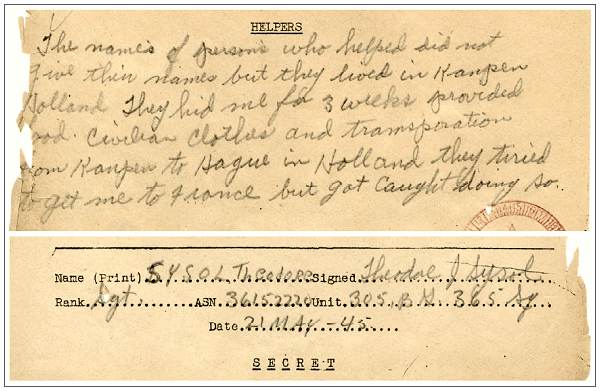 HELPERS
The names of persons who helped did not
give thier names but they lived in Kanpen
Holland They hid me for 3 weeks provided
food. Civilian Clothes and transporation
from Kanpen to Hague in Holland they tiried
to get me to France but got caught doing so.
Name (Print) SYSOL THEODORE Signed Theodore J Sysol
Rank Sgt. ASN. 36152220 Unit 305, B.H. 365 Sq
Date 21 MAY - 45
SECRET